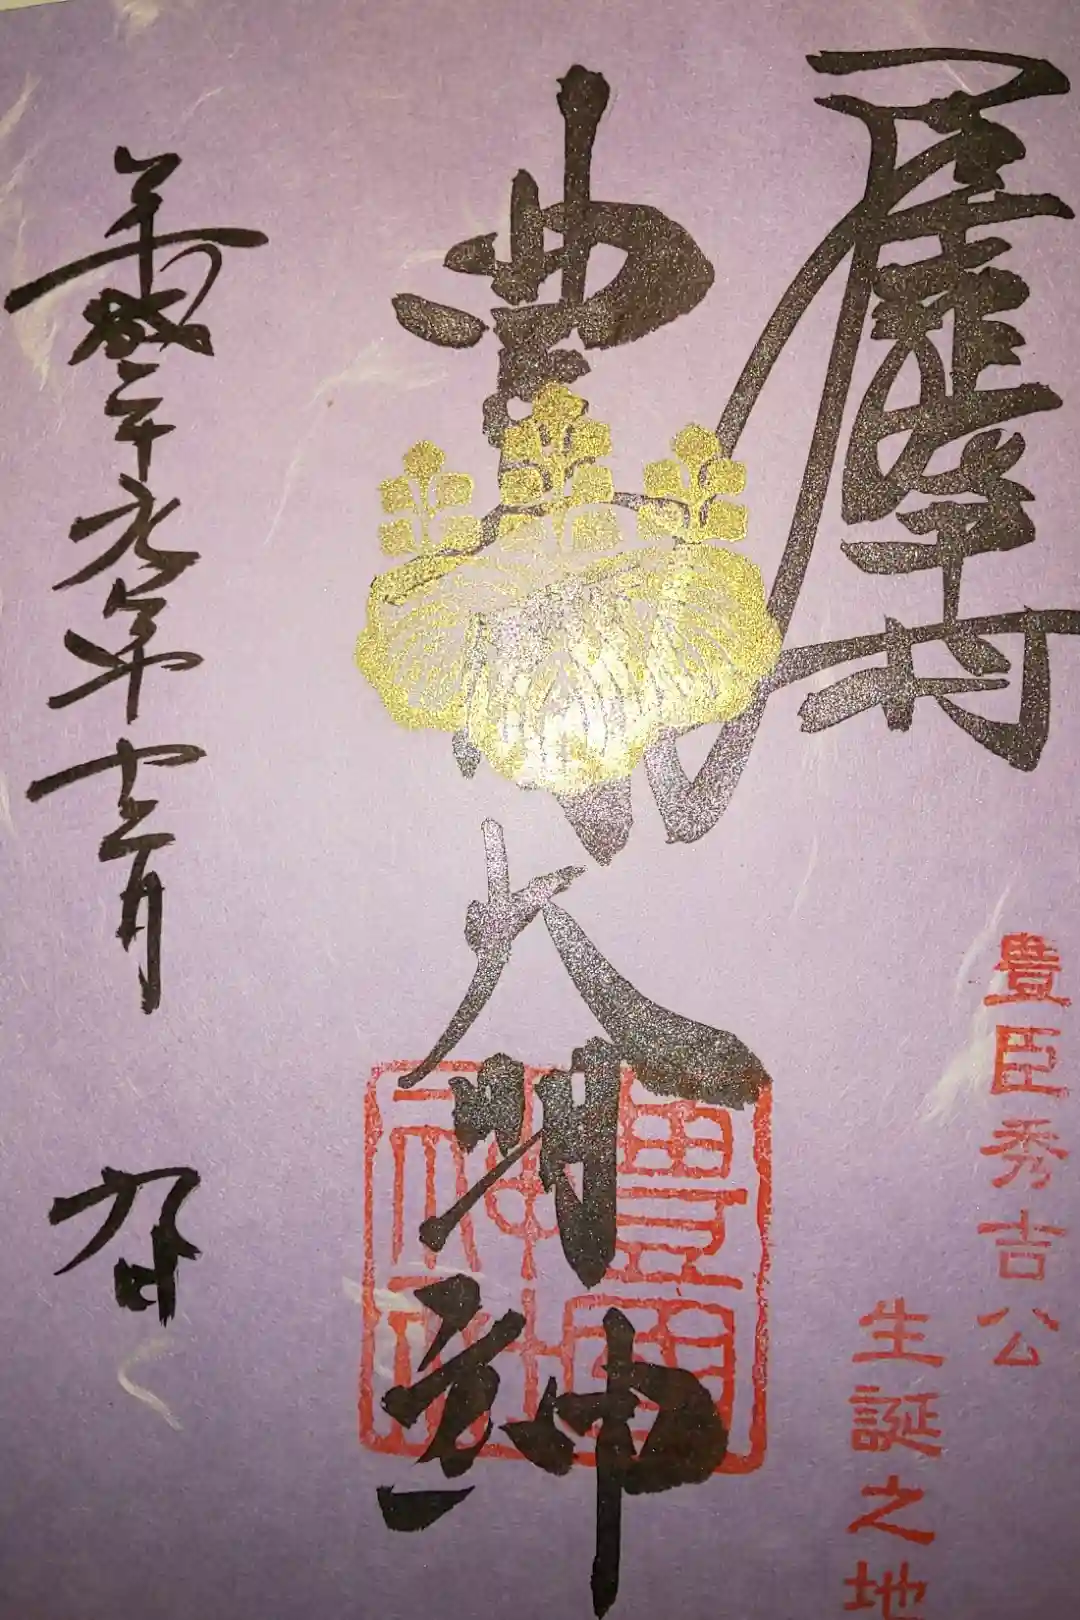 豊臣秀吉公
生誕之地
豊國大明神
豊國神社
平成二十九年十二月 九日